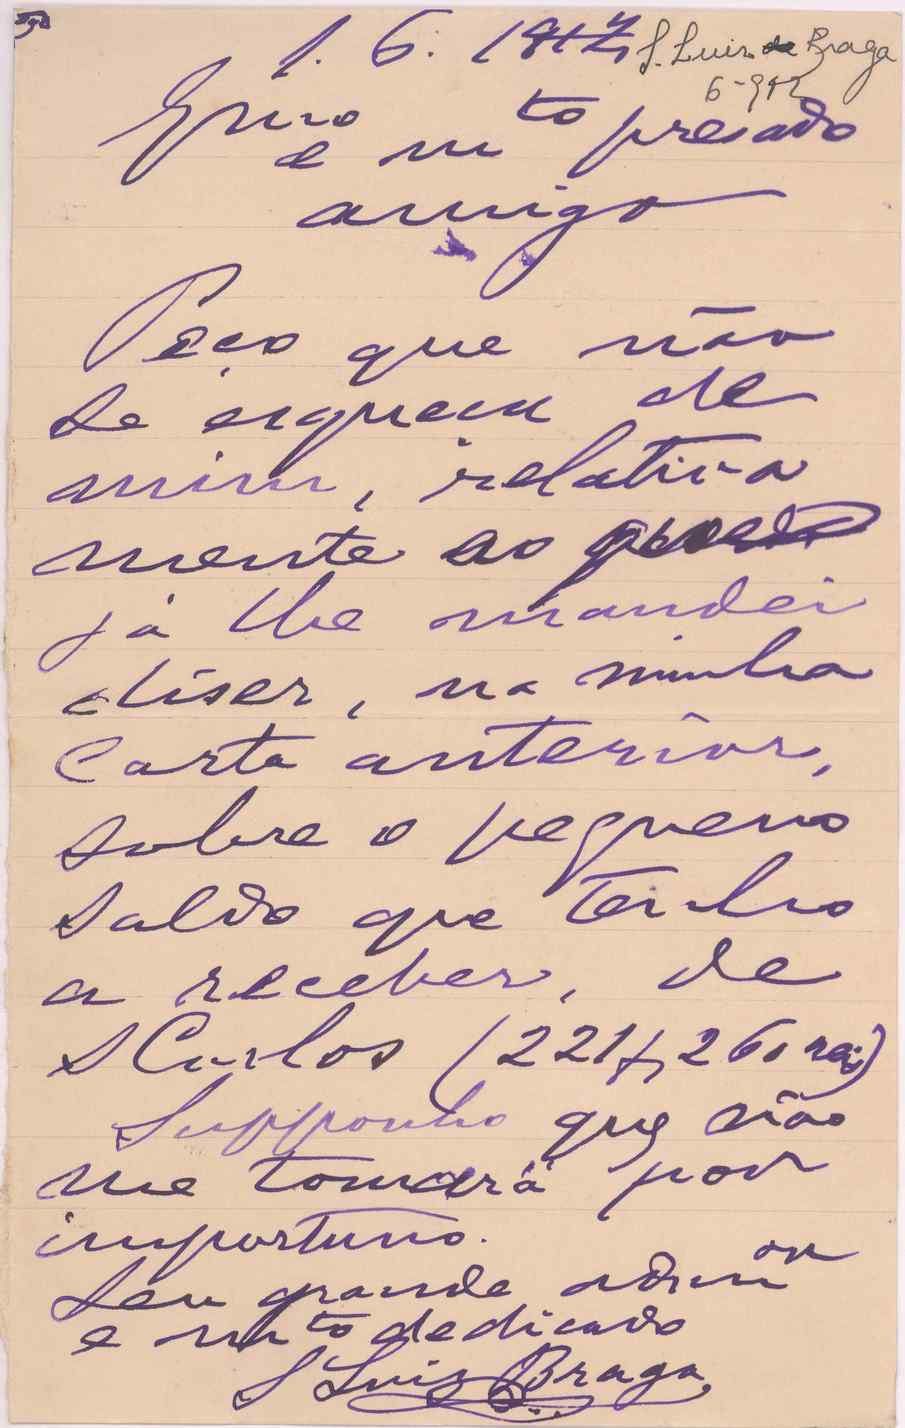 1. 6. 1912
S. Luiz de Braga
6-912
Exmo
e mto presado
amigo
Peço que não
se esqueça de
mim, relativa
mente ao
já lhe mandei
diser, na minha
carta anterior,
sobre o pequeno
saldo que tenho
a receber, de
S Carlos (221$, 260 reis)
Supponho que não
me tomará por
importuno.
Seu grande admor
e mto dedicado
S Luiz Braga